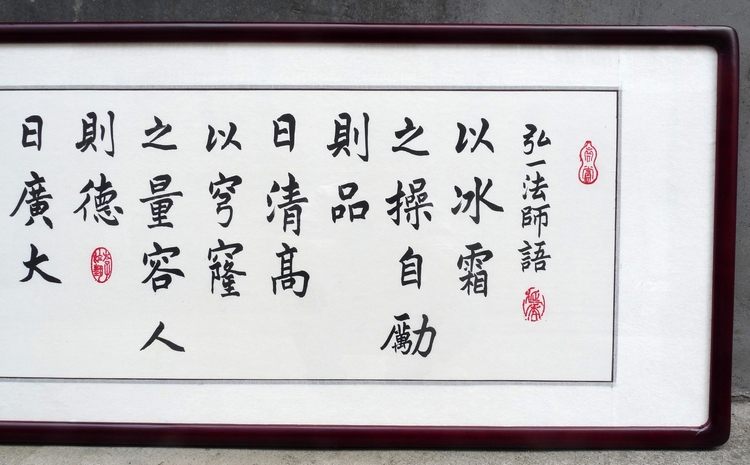 弘一法師語
以冰霜
之操自勵
則品
日清高
以穹窿
之量容人
則德
日廣大